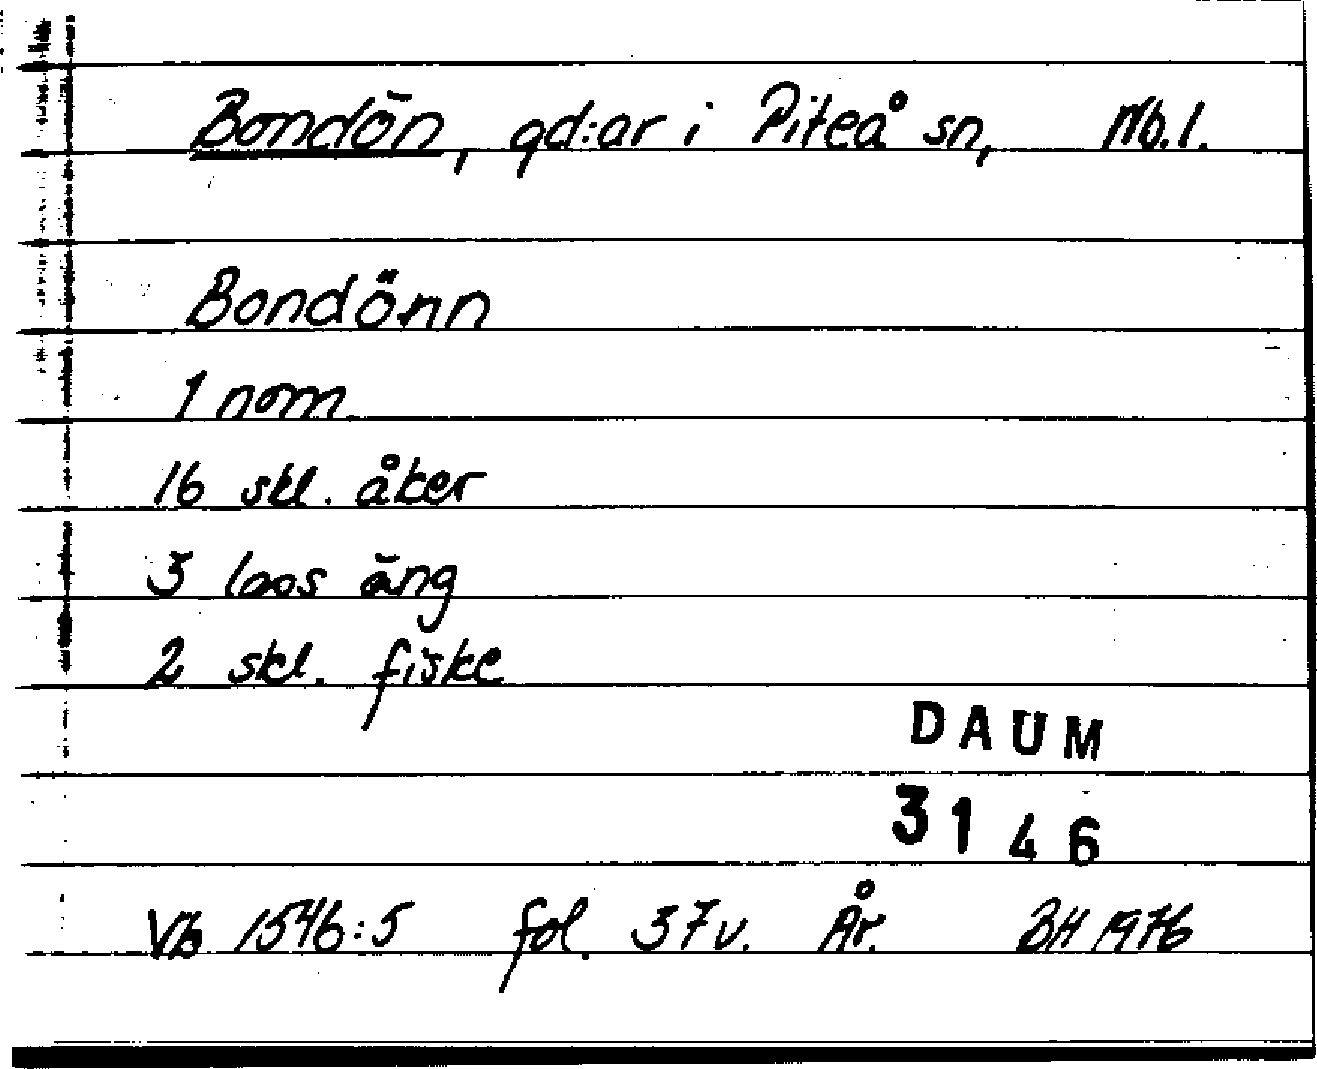 Bondön, gd:ar i Piteå sn, Nb.l.
Bondönn
1 nom
16 skl. åker
3 laos äng
2 skl. fiske
DAUM
3146
Vb 1546:5 fol. 37v. År. BH 1976